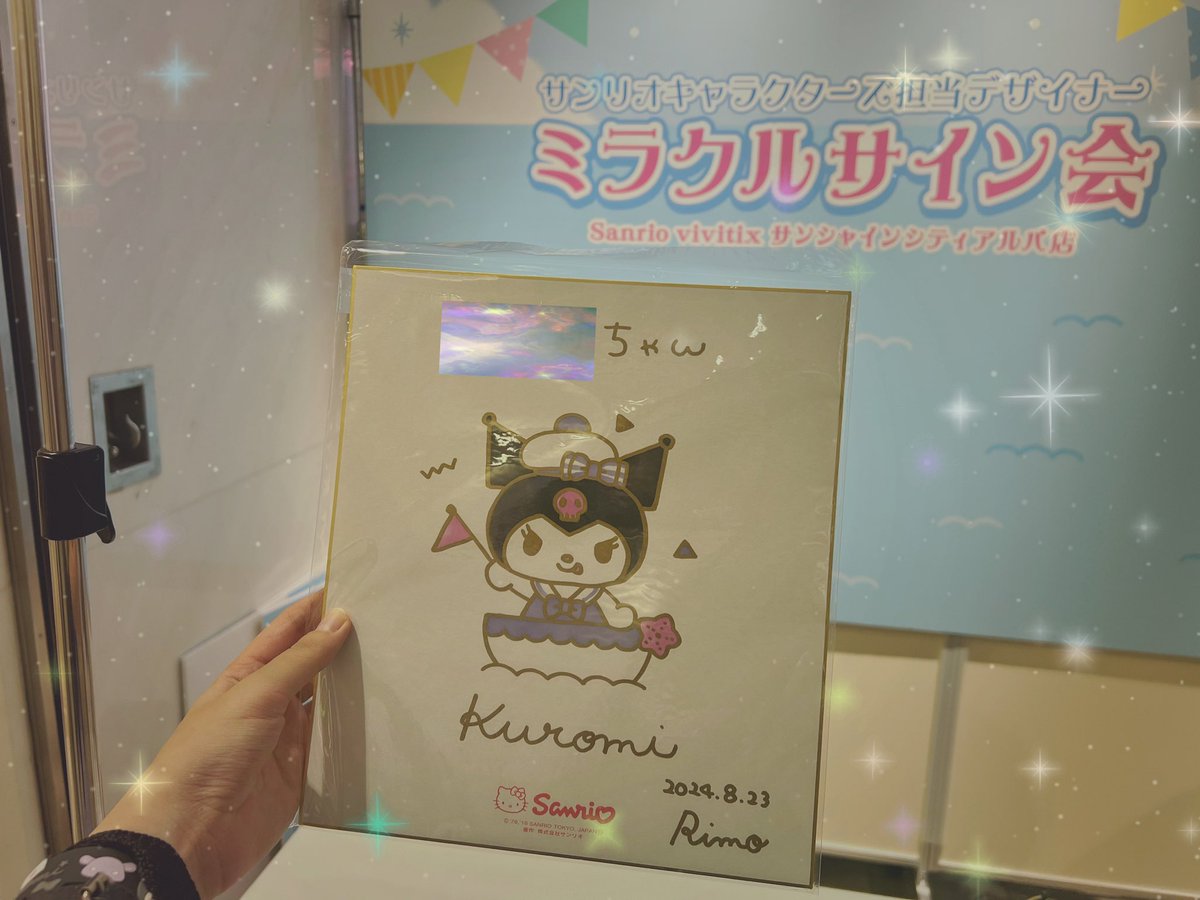 サンリオキャラクターズ担当デザイナー
ミラクルサイン会
Sanrio vivitix サンシャインシティアルパ店
ちゃん
Kuromi
2024.8.23
Sanrio
Rimo
著作 株式会社サンリオ